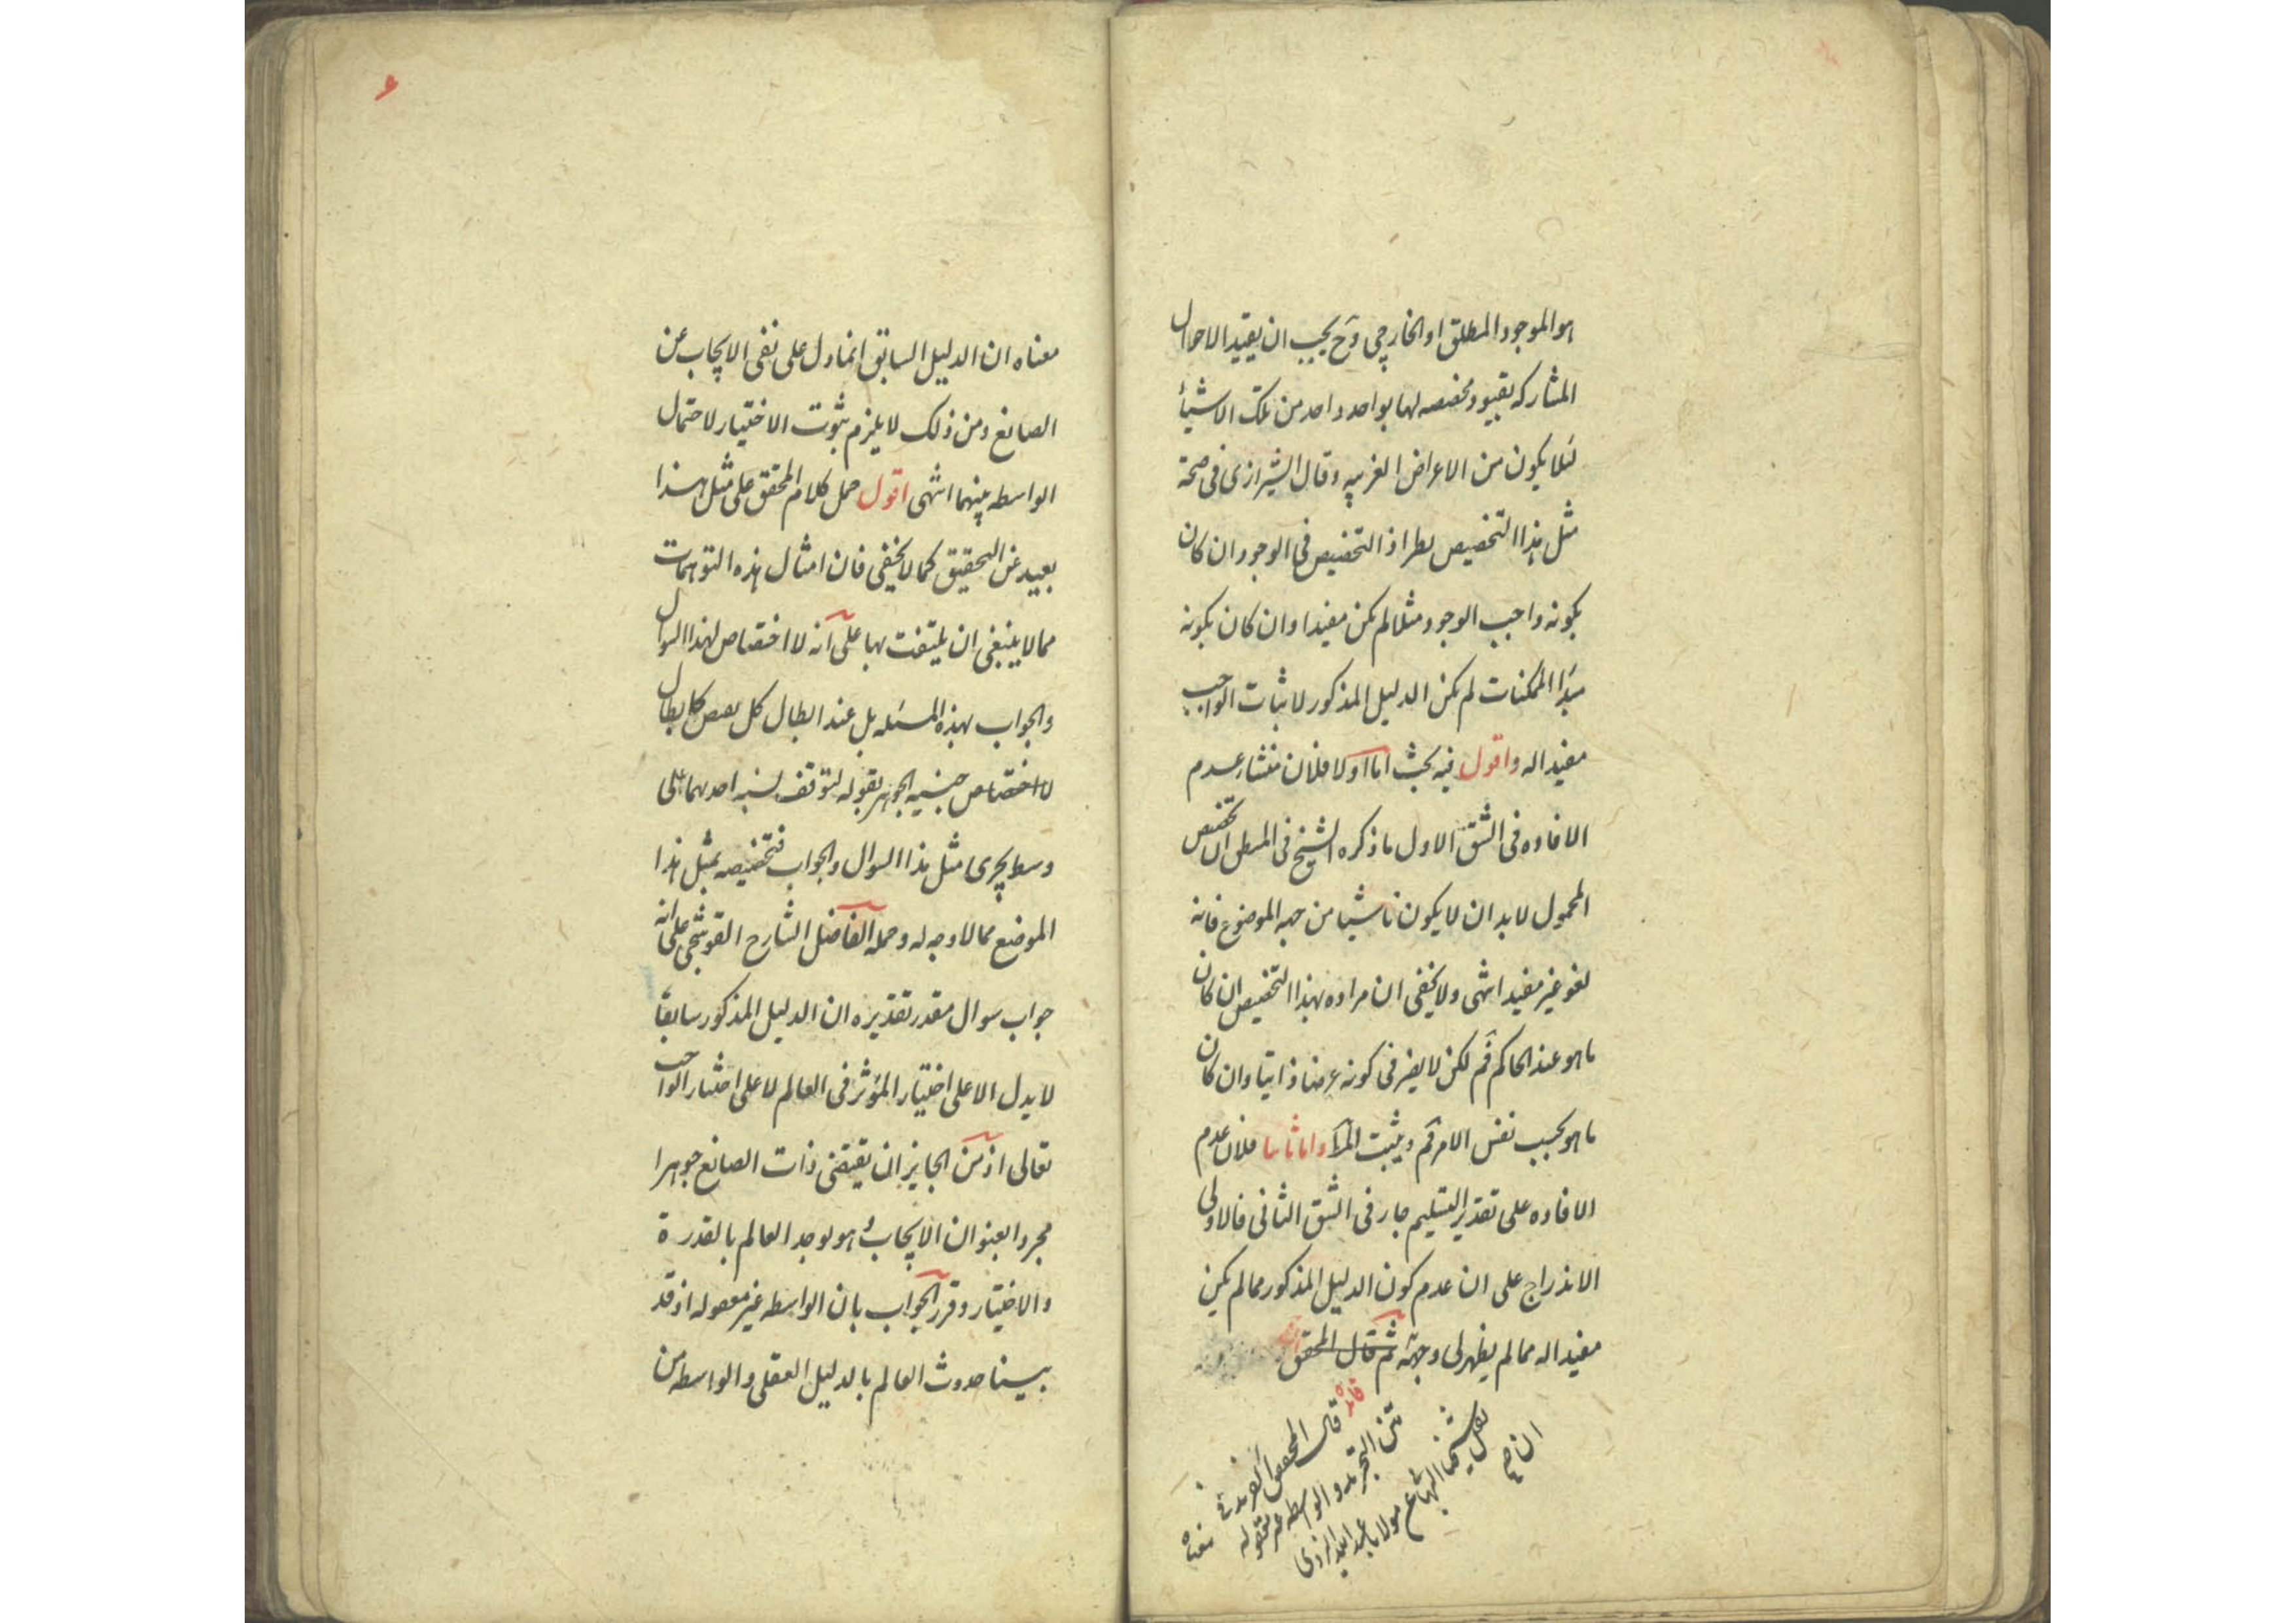 هو الموجود المطلق او الخارجى وح يجب ان يقيد الاحوال
المشاركه بقيود مخصصه لها بواحد واحد من تلك الاشياء
لئلا يكون من الاعراض الغريبه وقال الشيرازى فى صحة
مثل هذا التخصيص نظر اذ التخصيص فى الوجود ان كان
بكونه واجب الوجود مثلا لم يكن مفيدا وان كان بكونه
مبدأ الممكنات لم يكن الدليل المذكور لاثبات الواجب
مفيدا له واقول فيه بحث اما اولا فلان منشار عدم
الافاده فى الشق الاول ما ذكره الشيخ فى ان تخصيص
المحمول لابد ان لا يكون ناشيا من جهه الموضوع فانه
لغو غير مفيد انتهى ولا يخفى ان مراده بهذا التخصيص ان كان
ما هو عند الحاكم فم لكن لا يضر فى كونه عرضا ذاتيا وان كان
ما هو بحسب نفس الامر فم ويثبت واما ثانيا فلان عدم
الافاده على تقدير التسليم جار فى الشق الثانى فالاولى
الاندراج على ان عدم كون الدليل المذكور مما لم يكن
مفيدا له مما لم يظهر لى وجهه ثم قال المحقق
قال المحقق فى
متن التجريد والواسطه غير معقوله
نقل شيخنا البهائى عن مولانا عبد الله اليزدى
ان
معناه
معناه ان الدليل السابق انما دل على نفى الايجاب عن
الصانع ومن ذلك لا يلزم ثبوت الاختيار لاحتمال
الواسطه بينهما انتهى اقول حمل كلام المحقق على مثل هذا
بعيد عن التحقيق كما لا يخفى فان امثال هذه التوهمات
مما لا ينبغى ان يلتفت بها على انه لا اختصاص لهذا السوال
والجواب بهذه المسئله بل عند ابطال كل كابطال
لا اختصاص جنسيه الجوهر بقوله لتوقف نسبه احدهما على
وسط يجرى مثل هذا السوال والجواب فتخصيصه بمثل هذا
الموضع مما لا وجه له وحمله الفاضل الشارح القوشجى على انه
جواب سوال مقدر تقديره ان الدليل المذكور سابقا
لا يدل الا على اختيار المؤثر فى العالم لا على اختيار الواجب
تعالى اذ من الجايز ان يقتضى ذات الصانع جوهرا
مجردا بعنوان الايجاب وهو يوجد العالم بالقدرة
والاختيار وقرر الجواب بان الواسطه غير معقوله اذ قد
بينا حدوث العالم بالدليل العقلى والواسطه من